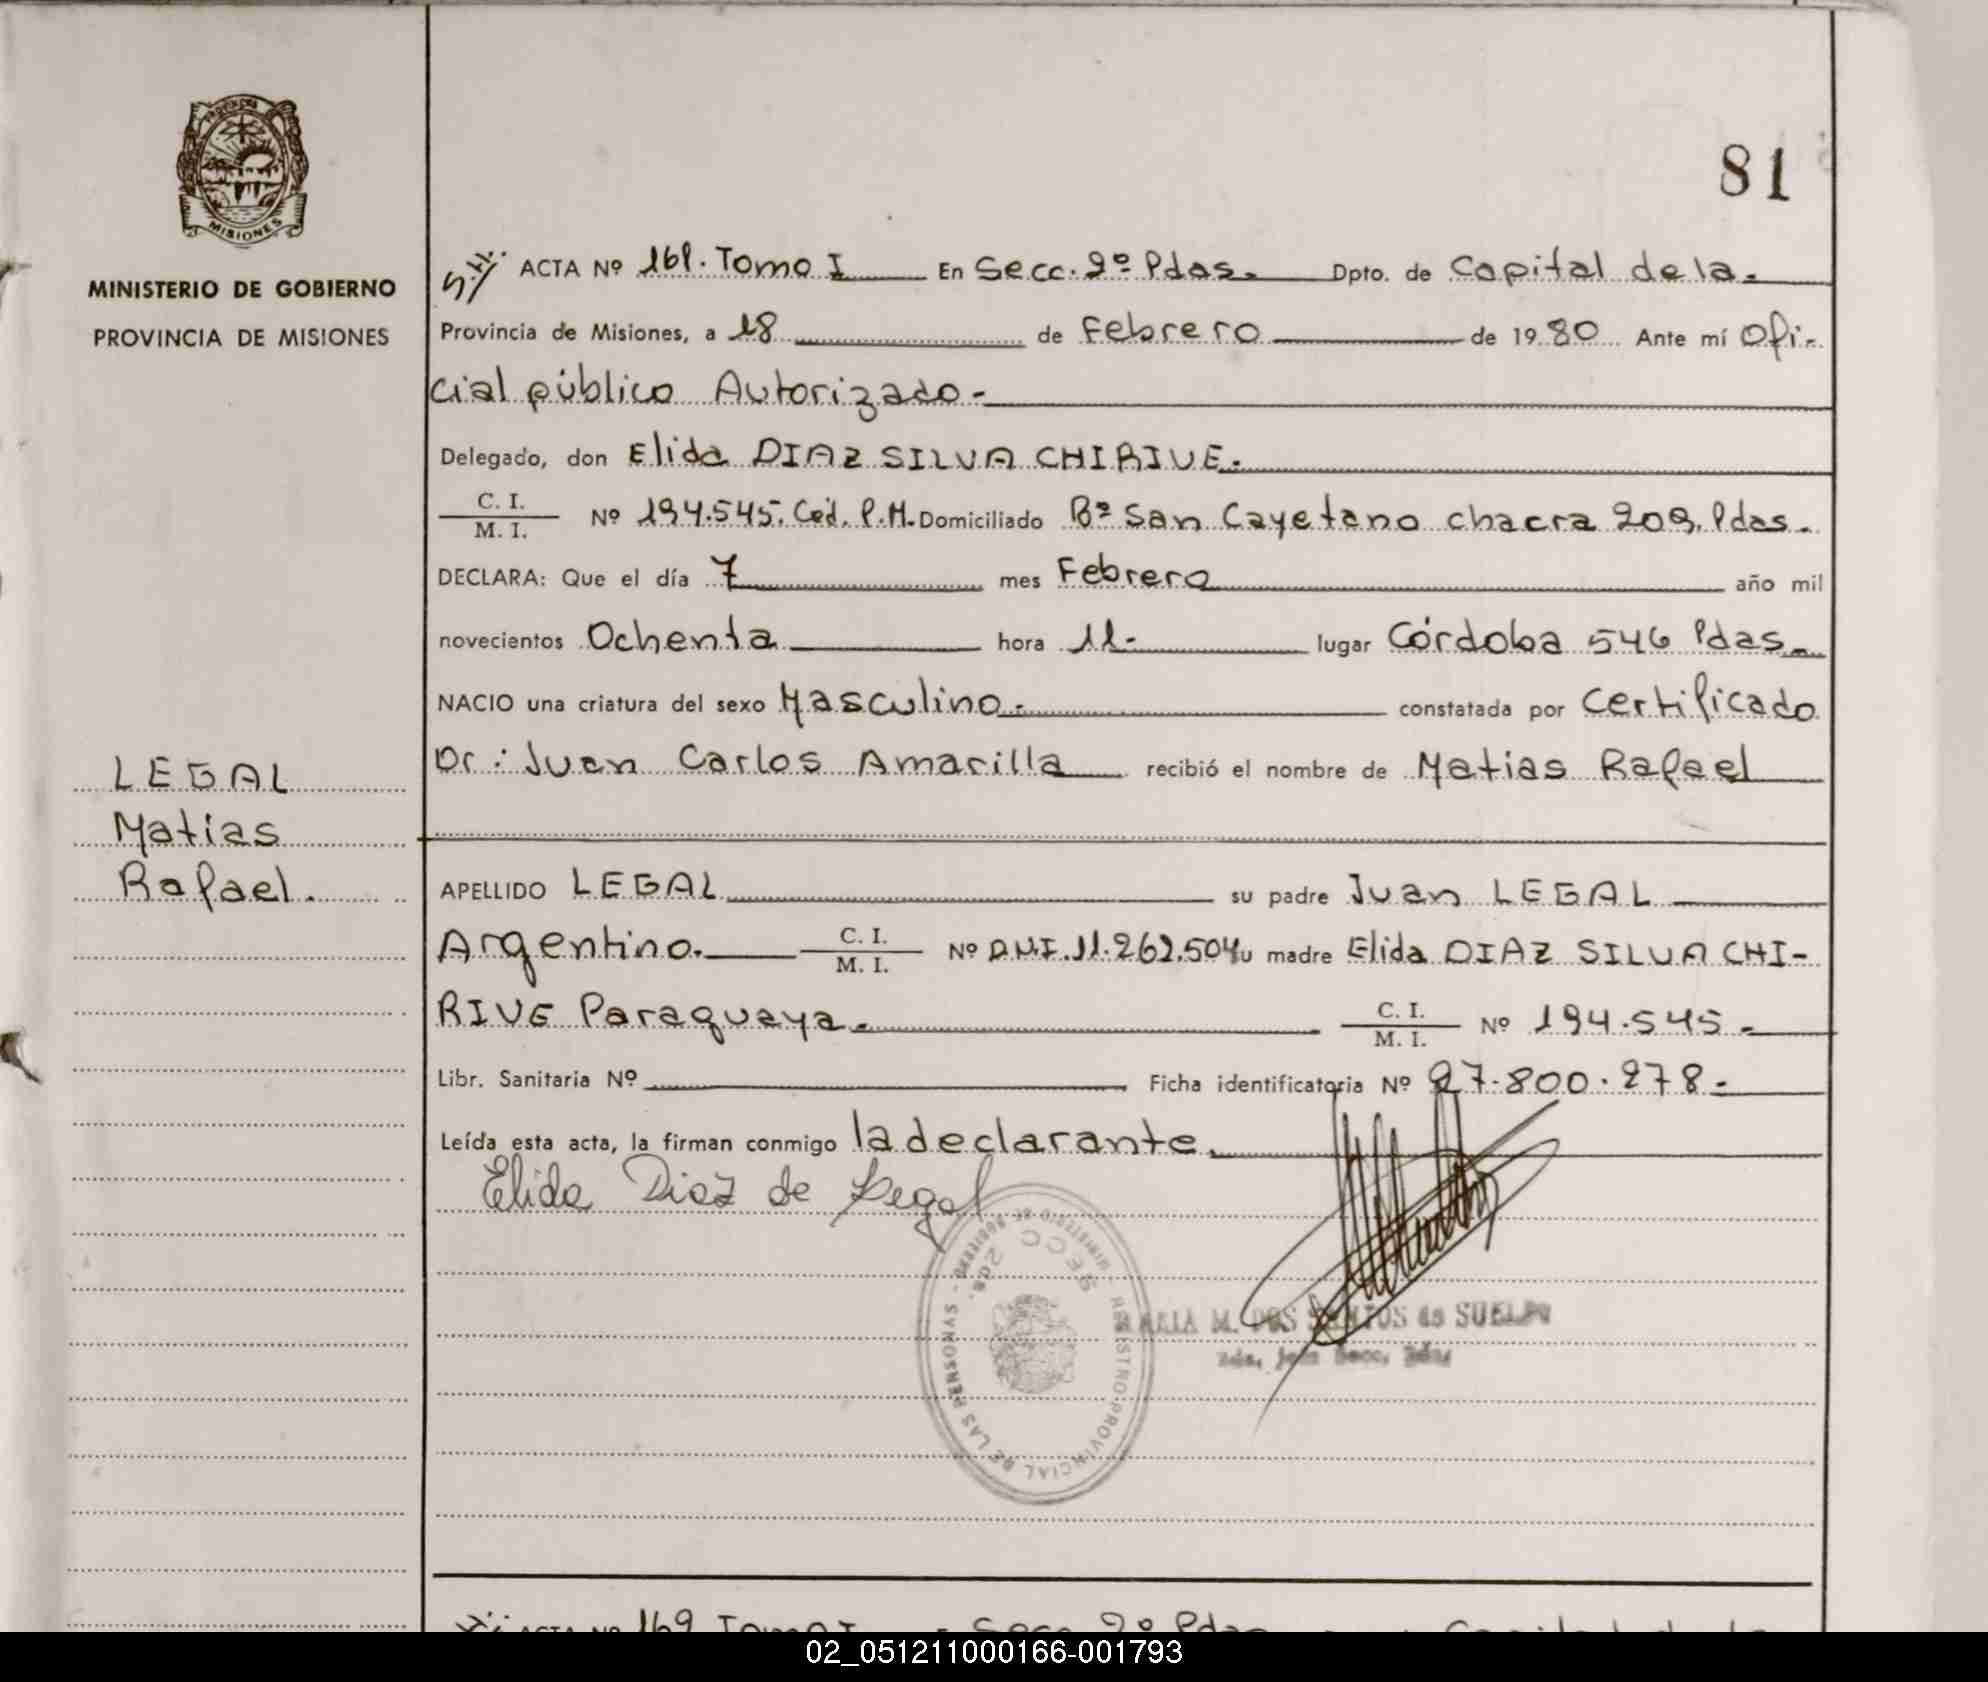 PROVINCIA
MISIONES
MINISTERIO DE GOBIERNO
PROVINCIA DE MISIONES
81
ACTA Nº 161. Tomo I En Secc. 2º Pdas. Dpto. de Capital de la.
Provincia de Misiones, a 18 de Febrero de 1980 Ante mí Ofi-
cial público Autorizado-
Delegado, don Elida DIAZ SILVA CHIRIVE.
C. I.
M. I. Nº 194.545. Céd. P.M. Domiciliado Bº San Cayetano chacra 209. Pdas.
DECLARA: Que el día 7 mes Febrero año mil
novecientos Ochenta hora 11- lugar Córdoba 546 Pdas.
NACIO una criatura del sexo Masculino. constatada por Certificado
Dr: Juan Carlos Amarilla recibió el nombre de Matias Rafael
LEGAL
Matias
Rafael.
APELLIDO LEGAL su padre Juan LEGAL
Argentino. C. I.
M. I. Nº D.N.I. 11.262.504 su madre Elida DIAZ SILVA CHI-
RIVE Paraguaya. C. I.
M. I. Nº 194.545-
Libr. Sanitaria Nº Ficha identificatoria Nº 27.800.278-
Leída esta acta, la firman conmigo la declarante.
Elida Diaz de Legal
REGISTRO PROVINCIAL DE LAS PERSONAS - MINISTERIO DE GOBIERNO
SECC 2da.
MARIA M. DOS SANTOS de
ACTA Nº 169 Tomo I Secc 2º Pdas Capital de la
02_051211000166-001793